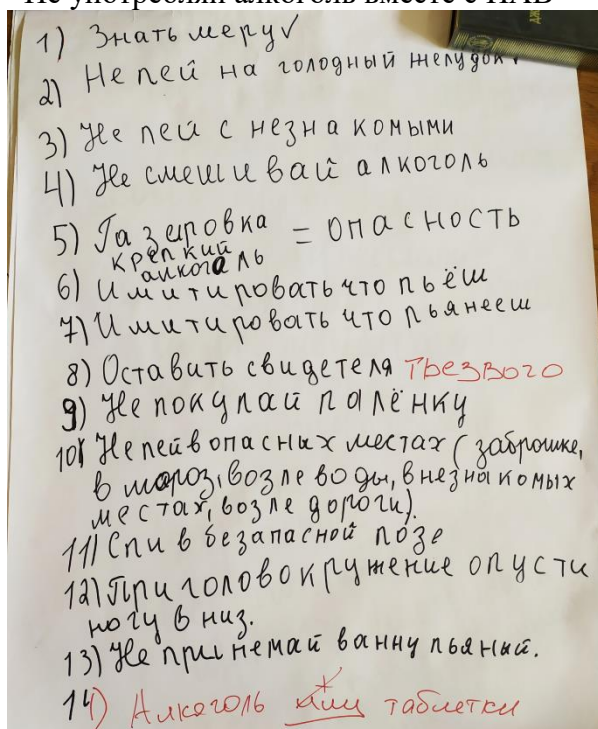 Не употребляй алкоголь вместе с ПАВ
1) Знать меру✓
2) Не пей на голодный желудок✓
3) Не пей с незнакомыми
4) Не смешивай алкоголь
5) Газировка = опасность
крепкий
алкоголь
6) Имитировать что пьёш
7) Имитировать что пьянееш
8) Оставить свидетеля трезвого
9) Не покупай палёнку
10) Не пей в опасных местах (заброшке,
в мороз, возле воды, в незнакомых
местах, возле дороги).
11) Спи в безапасной позе
12) При головокружение опусти
ногу в низ.
13) Не принемай ванну пьяный.
14) Алкоголь или таблетки